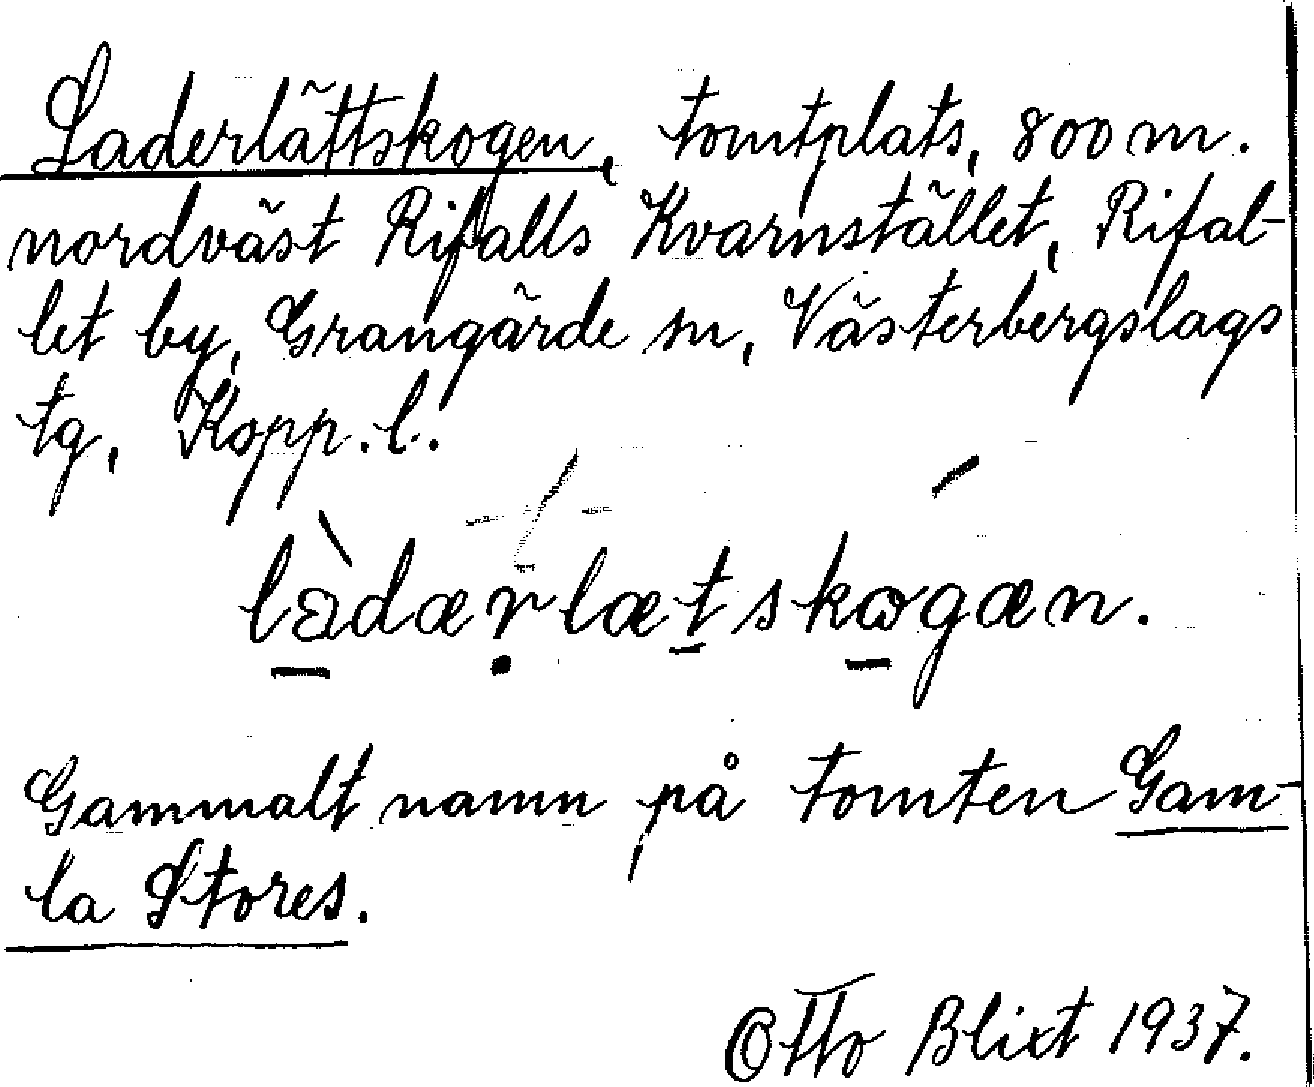 Laderlättskogen, tomtplats, 800 m.
nordväst Rifalls Kvarnstället, Rifal-
let by, Grangärde sn, Västerbergslags
tg, Kopp. l.
làdærlætskogæn.
Gammalt namn på tomten Gam-
la Stores.
Otto Blixt 1937.